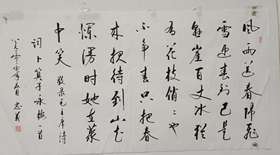 风雨送春歸飛
雪迎春到已是
懸崖百丈冰猶
有花枝俏々也
不争春只把春
来报待到山花
爛漫时她在叢
中笑 敬录毛主席诗
词卜算子咏梅一首